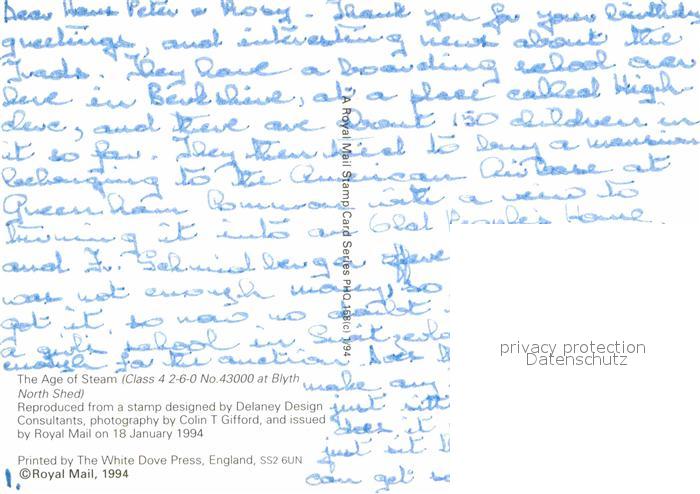 Dear Hans Peter & Rosy. Thank you for your birthday
greetings, and interesting news about the
Trads. They have a boarding school over
here in Berkshire, at a place called High
clere, and there are about 150 children in
it so far. They then tried to buy a mansion
belonging to the American Air Base at
Greenham Common with a view to
turning it into an Old People's Home.
and Fr. Schmidberger
was not enough money, so
got it, so now no doubt
a girls school in
enough for the auction. Does
make any
just sitti
does it
just sit th
can get so
A Royal Mail Stamp Card Series PHQ 158(c) 1/94
privacy protection
Datenschutz
The Age of Steam (Class 4 2-6-0 No.43000 at Blyth
North Shed)
Reproduced from a stamp designed by Delaney Design
Consultants, photography by Colin T Gifford, and issued
by Royal Mail on 18 January 1994
Printed by The White Dove Press, England, SS2 6UN
©Royal Mail, 1994
1.